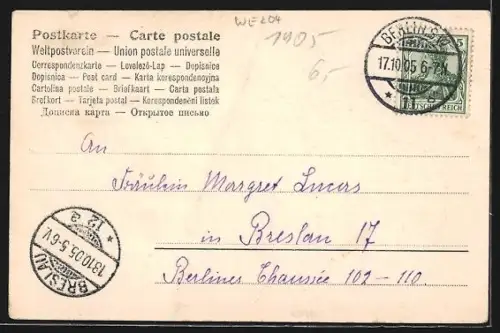 Postkarte — Carte postale
Weltpostverein — Union postale universelle
Correspondenzkarte — Levelező-Lap — Dopisnice
Dopisnica — Post card — Karta korespondencyjna
Cartolina postale — Briefkaart — Carta postala
Brefkort — Tarjeta postal — Korespondenční lístek
Дописна карта — Открытое письмо
WE204
1905
6,-
BERLIN S.W.
17.10.05 6-7N.
5
DEUTSCHES REICH
An
Fräulein Margret Lucas
in Breslau 17
Berliner Chaussée 102-110.
BRESLAU
18.10.05.5-6V.